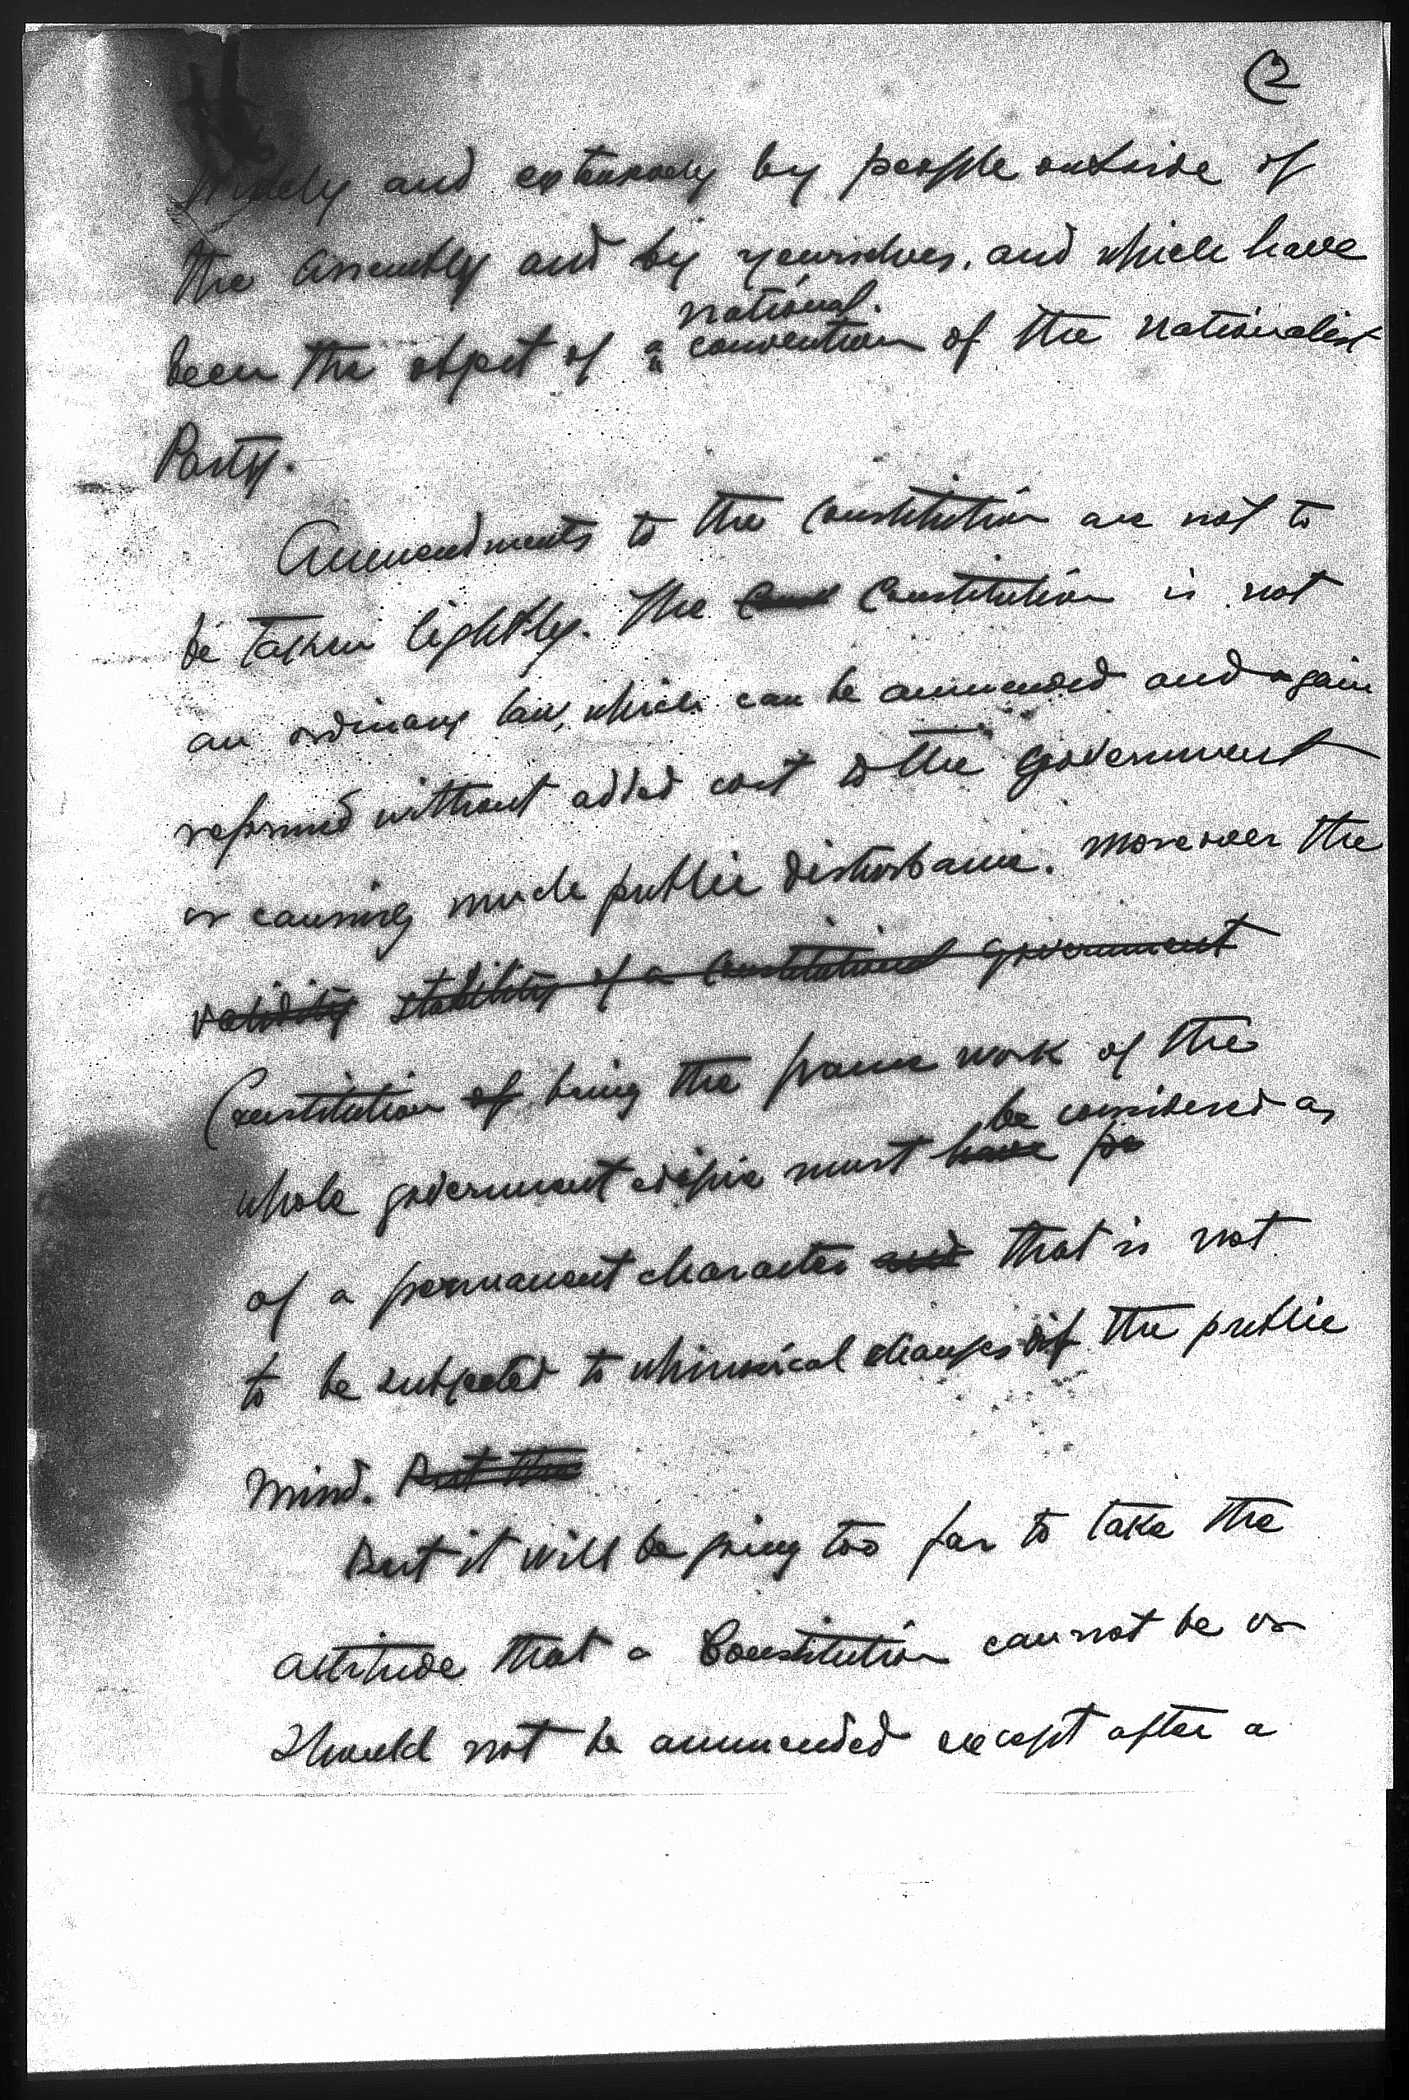 2
widely and extensively by people outside of
the assembly and by yourselves, and which have
national
been the object of a convention of the Nationalist
Party.
Ammendments to the Constitution are not to
be taken lightly. The Const Constitution is not
an ordinary law, which can be ammended and again
reformed without added cost to the government
or causing much public disturbance. Moreover the
validity stability of a Constitutional government
Constitution of being the frame work of the
be considered as
whole government edifice must have pe
of a permanent character and that is not
to be subjected to whimsical changes of the public
mind. But the
But it will be going too far to take the
attitude that a Constitution cannot be or
should not be ammended except after a